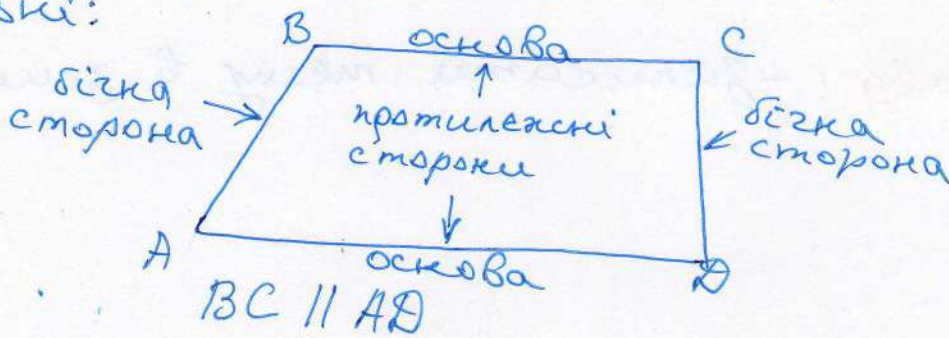 B основа C
бічна
сторона
протилежні
сторони
бічна
сторона
A основа D
BC || AD